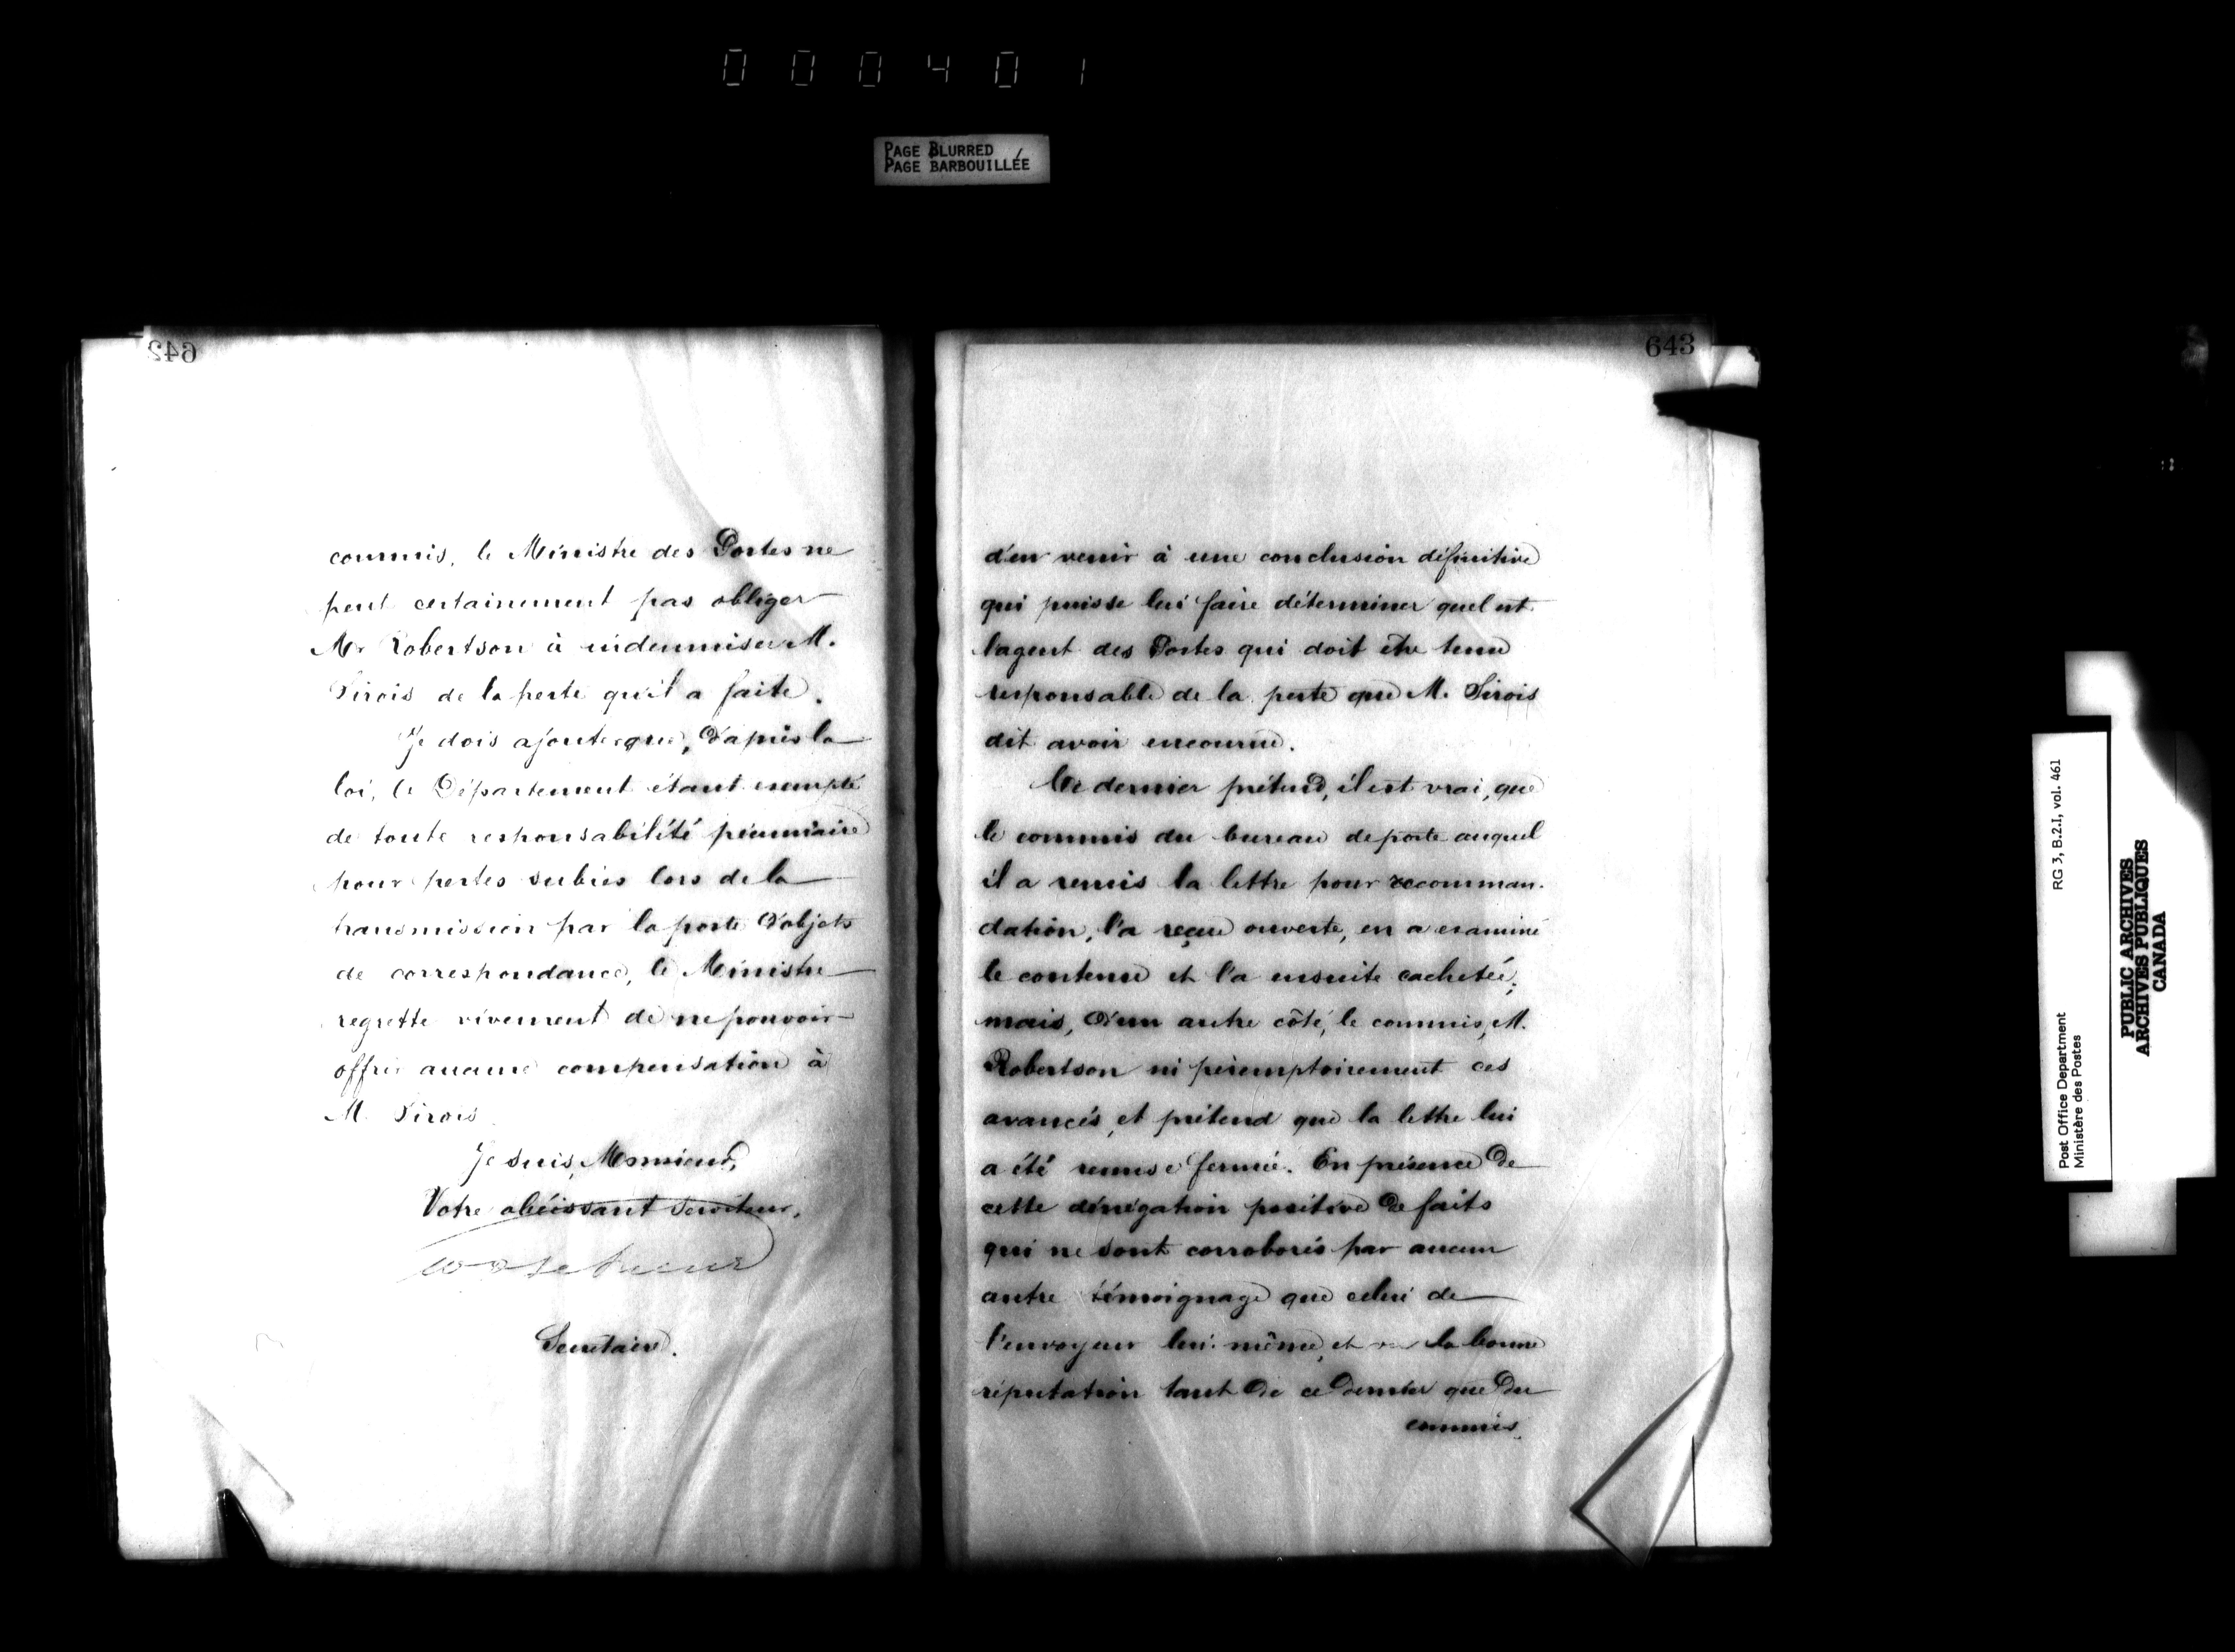 000401
PAGE BLURRED
PAGE BARBOUILLÉE
642
commis, le Ministre des Postes ne
peut certainement pas obliger
Mr Robertson à indemniser M.
Sirois de la perte qu'il a faite.
Je dois ajouter que, d'après la
loi, le Département étant exempté
de toute responsabilité pécuniaire
pour pertes subies lors de la
transmission par la poste d'objets
de correspondance, le Ministre
regrette vivement de ne pouvoir
offrir aucune compensation à
M. Sirois
Je suis, Monsieur,
Votre obéissant serviteur,
Secrétaire.
643
d'en venir à une conclusion définitive
qui puisse lui faire déterminer quel est
l'agent des Postes qui doit être tenu
responsable de la perte que M. Sirois
dit avoir encourue.
Ce dernier prétend, il est vrai, que
le commis du bureau de poste auquel
il a remis la lettre pour recomman-
dation, l'a reçue ouverte, en a examiné
le contenu et l'a ensuite cachetée;
mais, d'un autre côté, le commis, M.
Robertson ni péremptoirement ces
avancés, et prétend que la lettre lui
a été remise fermée. En présence de
cette dénégation positive de faits
qui ne sont corroborés par aucun
autre témoignage que celui de
l'envoyeur lui-même, et vu la bonne
réputation tant de ce dernier que du
commis.
Post Office Department RG 3, B.2.I, vol. 461
Ministère des Postes
PUBLIC ARCHIVES
ARCHIVES PUBLIQUES
CANADA